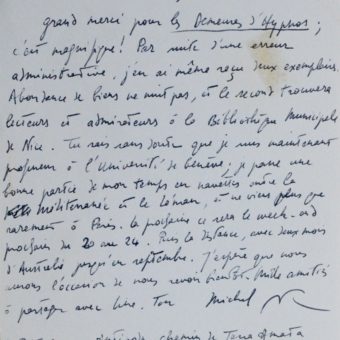 grand merci pour les Demeures d'Hypnos ;
c'est magnifique ! Par suite d'une erreur
administrative j'en ai même reçu deux exemplaires.
Abondance de biens ne nuit pas, et le second trouvera
lecteurs et admirateurs à la Bibliothèque Municipale
de Nice. Tu sais sans doute que je suis maintenant
professeur à l'Université de Genève ; je passe une
bonne partie de mon temps en navettes entre la
Méditerranée et le Léman, et ne viens plus que
rarement à Paris. La prochaine ce sera le week-end
prochain du 20 au 24. Puis la distance, avec deux mois
d'Australie jusqu'en septembre. J'espère que nous
aurons l'occasion de nous revoir bientôt. Mille amitiés
à partager avec Line. Ton Michel
chemin de Terra Amata